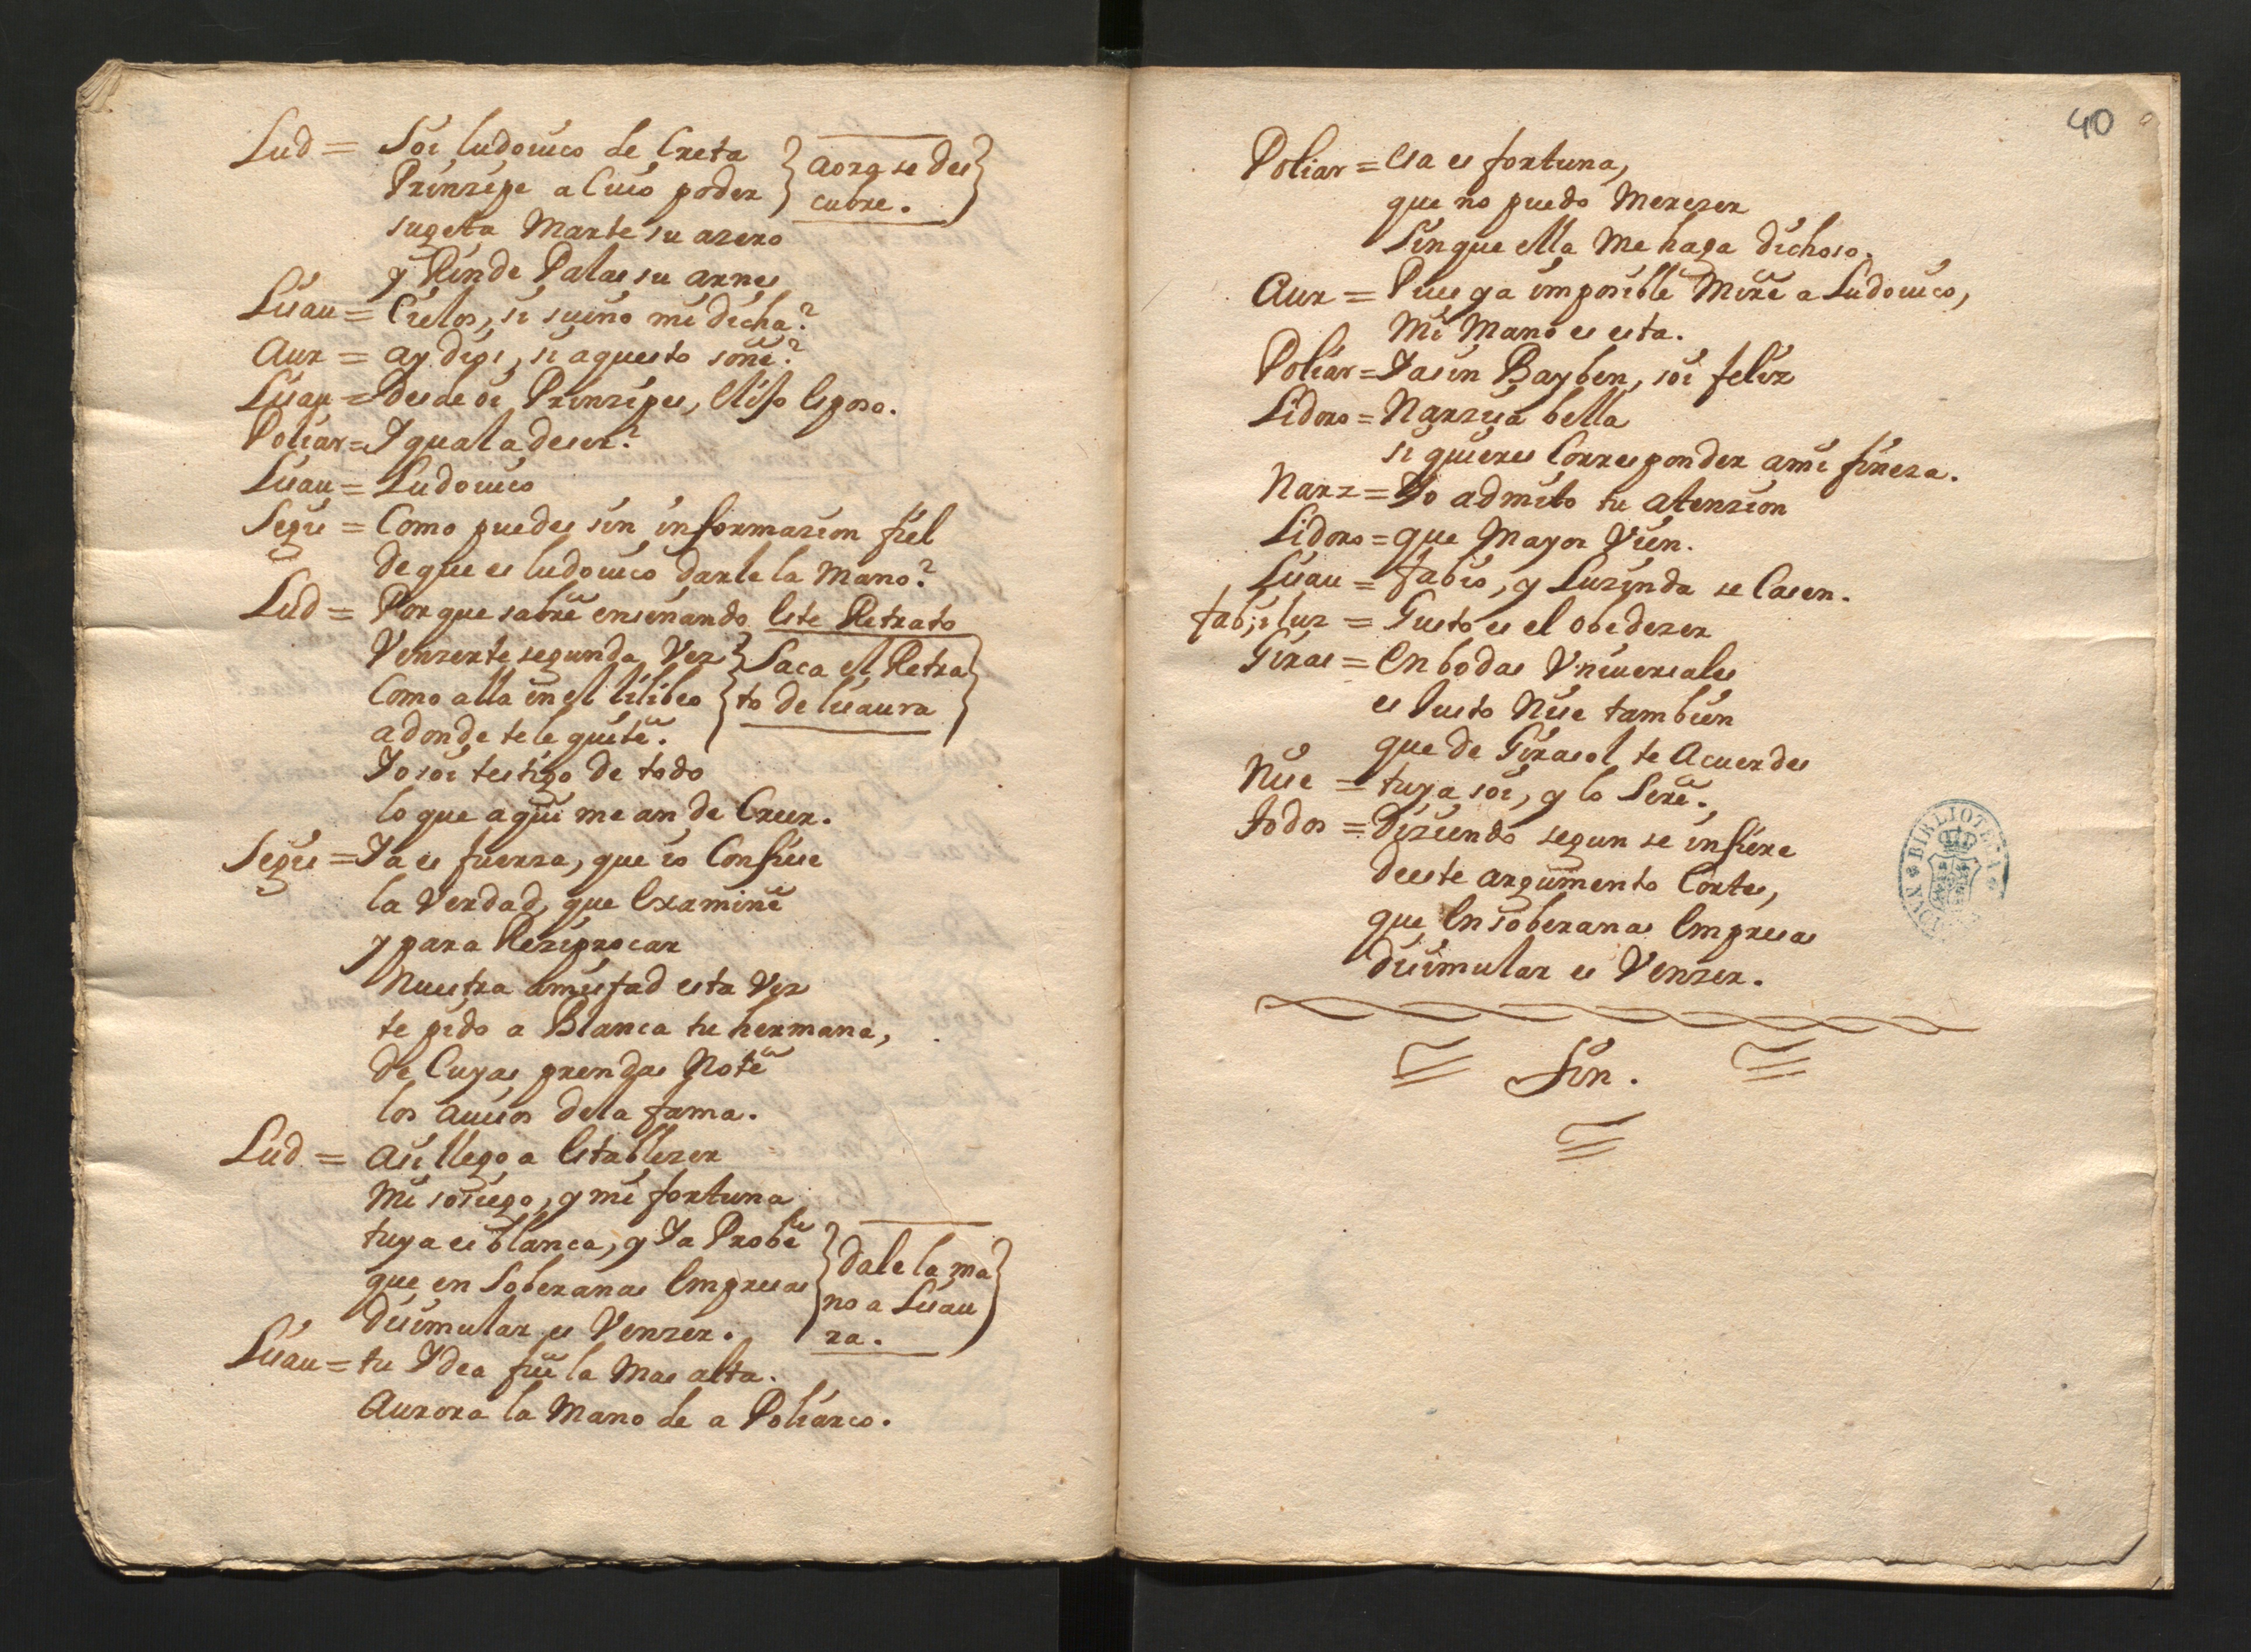 Lud = Soi ludouico de Creta
Prinzipe a Cuio poder
} aora se des
cubre. }
sugeta Marte su azero
y Rinde Palas su arnes
Lisau = Cielos, si sueño mi dicha?
Aur = ay digi, si aquesto soñé?
Lisau = desde oi Prinzipes, eliso esposo.
Poliar = Igual a de ser?
Lisau = Ludouico
Segis = Como puedes sin informazion fiel
de que es ludouico darle la Mano?
Lud = Por que sabré enseñando este Retrato
Venzerte segunda Vez
} Saca el Retra
Como alla en el lilibeo
to de lisaura }
adonde te le quité.
Io soi testigo de todo
lo que aqui me an de Creer.
Segis = Ia es fuerza, que io Confiese
la Verdad, que examiné
y para Reziprocar
Nuestra amistad esta Vez
te pido a Blanca tu hermana,
de Cuyas prendas Noté
los auisos de la fama.
Lud = asi llego a establezer
Mi sosiego, y mi fortuna
tuya es blanca, y Ia Probé
que en Soberanas empresas
} dale la ma
no a Lisau
disimular es Venzer.
ra. }
Lisau = tu Idea fué la Mas alta.
Aurora la Mano de a Poliarco.
40
Poliar = esa es fortuna,
que no puedo Merezer
Sin que ella Me haga dichoso.
Aur = Pues ya imposible Miré a Ludouico,
Mi Mano es esta.
Poliar = Ia sin Bayben, soi feliz
Lidoro = Narzisa bella
si quieres Corresponder a mi fineza.
Narz = Io admito tu atenzion
Lidoro = que Mayor Vien.
Lisau = fabio, y Luzinda se Casen.
fab, i luz = Gusto es el obedezer
Giras = en bodas Vniuersales
es Iusto Nise tambien
que de Girasol te Acuerdes
Nise = tuya soi, y lo Seré.
todos = diziendo segun se infiere
deeste argumento Cortes,
que en soberanas empresas
disimular es Venzer.
Fin.
BIBLIOTECA